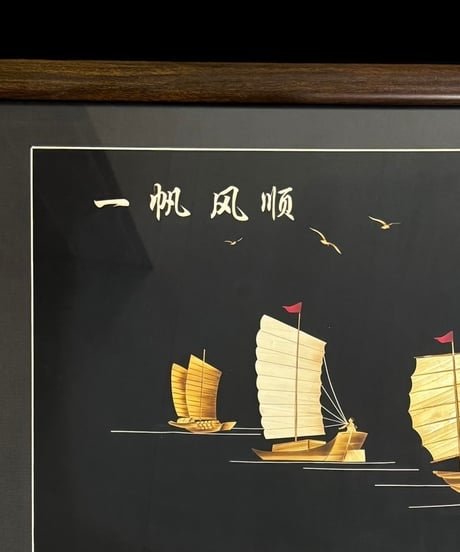 一帆风顺